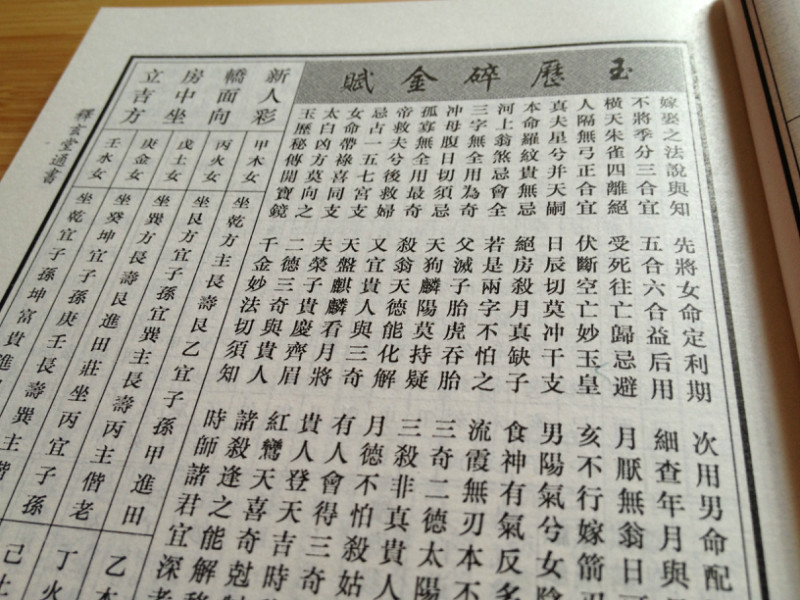 玉歷碎金賦
嫁娶之法說與知 先將女命定利期 次用男命配
不將季分三合宜 五合六合益后用 細查年月與
橫天朱雀四離絕 受死往亡歸忌避 月厭無翁日
人隔無弓正合宜 伏斷空亡妙玉皇 亥不行嫁箭刃
真夫星兮并天嗣 日辰切莫冲干支 男陽氣兮女陰
本命羅紋貴無忌 絕房殺月真缺子 食神有氣反多
河上翁煞忌會全 若是兩字不怕之 流霞無刃本不
三字無全用為奇 父滅子胎虎吞胎 三奇二德太陽
冲母腹日切須忌 天狗麟陽莫持疑 三殺非真貴人
孤寡無全用最奇 殺翁天德能化解 月德不怕殺姑
帝救夫兮後救婦 又宜貴人與三奇 有人會得三奇
忌占一五七宮支 天盤麒麟看月將 貴人登天吉時
女命帶祿喜同支 夫榮子貴慶齊眉 紅鸞天喜奇尅
太白凶方莫向之 二德三奇與貴人 諸殺逢之能解
玉歷秘傳開寶鏡 千金妙法切須知 時師諸君宜深
新人彩
轎面向
房中坐
立吉方
甲木女 坐乾方主長壽艮乙宜子孫甲進田 乙木
丙火女 坐艮方宜子孫宜巽主長壽丙主偕老
戊土女 坐巽方長壽艮進田莊坐丙宜子孫 丁火
庚金女 坐癸坤宜子孫庚壬長壽巽主偕
壬水女 坐乾宜子孫坤富貴進 己土
釋玄堂通書